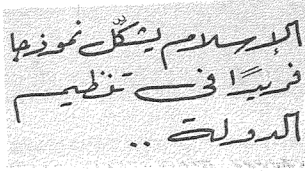 الإسلام يشكّل نموذجا
فريدًا فى تنظيم
الدولة ..